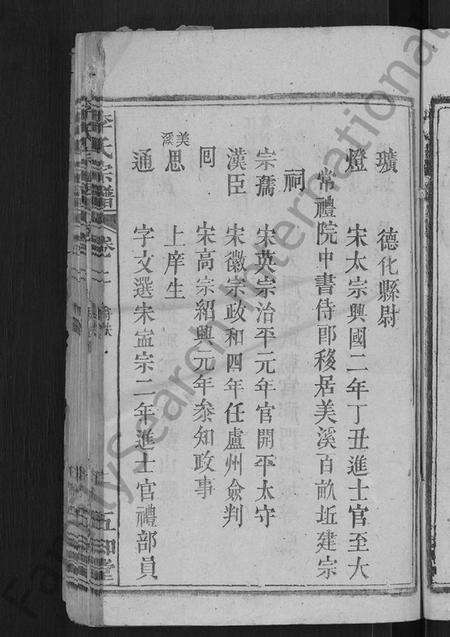 璜　德化縣尉
燈　宋太宗興國二年丁丑進士官至大
常禮院中書侍郎移居美溪百畝坵建宗
祠
崇儒　宋英宗治平元年官開平太守
漢臣　宋徽宗政和四年任盧州僉判
囘　宋高宗紹興元年叅知政事
美溪　思　上庠生
通　字文選宋寍宗二年進士官禮部員
李氏宗譜　卷之
五知堂
FamilySearch International